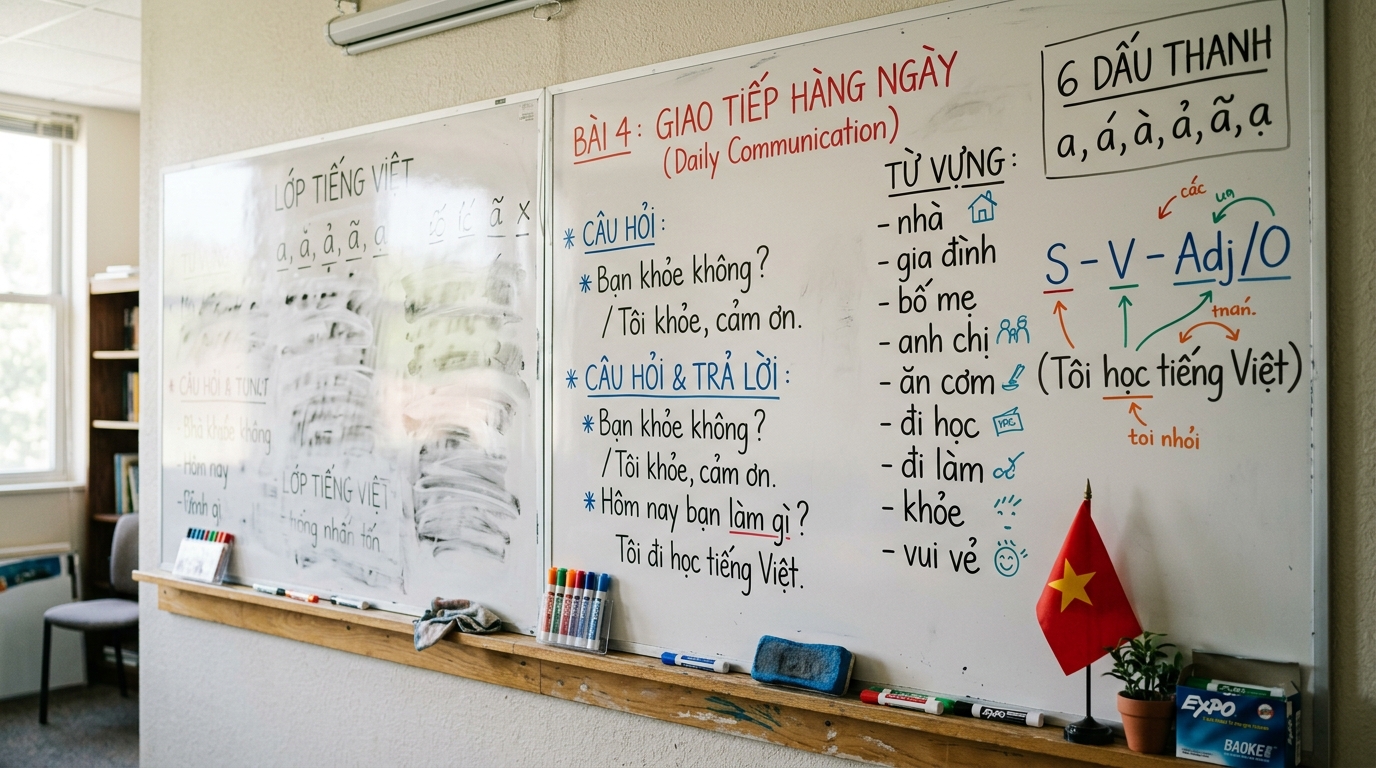 LỚP TIẾNG VIỆT
a, ă, ả, ã, ạ
ã X
CÂU HỎI &
khỏe không
- Hôm nay
gì
- LỚP TIẾNG VIỆT
BÀI 4: GIAO TIẾP HÀNG NGÀY
(Daily Communication)
* CÂU HỎI:
* Bạn khỏe không?
/ Tôi khỏe, cảm ơn.
* CÂU HỎI & TRẢ LỜI:
* Bạn khỏe không?
/ Tôi khỏe, cảm ơn.
* Hôm nay bạn làm gì?
Tôi đi học tiếng Việt.
TỪ VỰNG:
- nhà
- gia đình
- bố mẹ
- anh chị
- ăn cơm
- đi học
- đi làm
- khỏe
- vui vẻ
6 DẤU THANH
a, á, à, ả, ã, ạ
các
S - V - Adj/O
(Tôi học tiếng Việt)
toi nhỏi
EXPO
EXPO
BAOKE